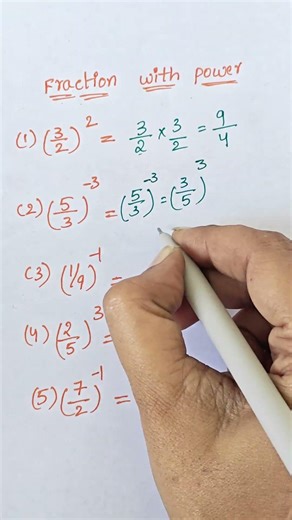 Fraction with power
(1) (3/2)² = 3/2 × 3/2 = 9/4
(2) (5/3)⁻³ = (5/3)⁻³ = (3/5)³
(3) (1/9)⁻¹ =
(4) (2/5)³ =
(5) (7/2)⁻¹ =